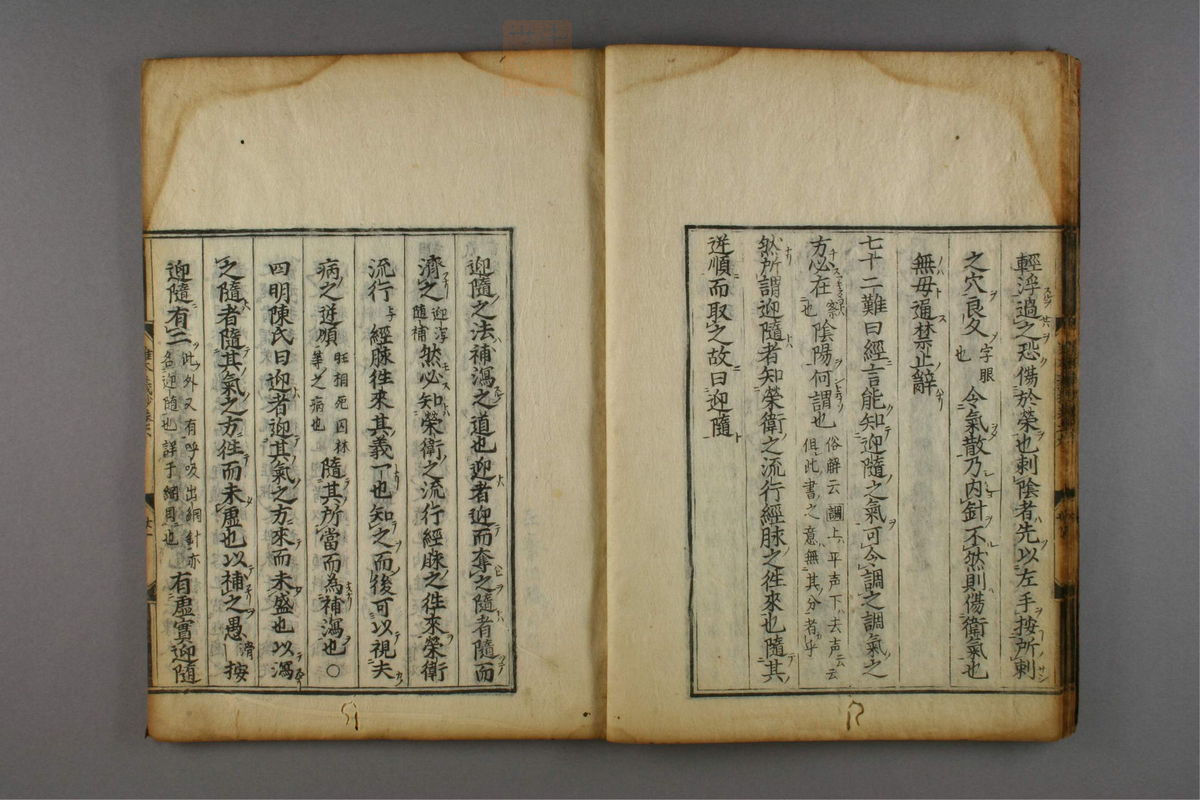 輕浮過之恐傷於榮也刺陰者先以左手按所刺
之穴良久字眼也令氣散乃內針不然則傷衛氣也
無毋通禁止辭
七十二難曰經言能知迎隨之氣可令調之調氣之
方必在察也陰陽何謂也俗解云調上ハ平声下ハ去声云云但此書之意無其分者乎
然所謂迎隨者知榮衛之流行經脉之徃來也隨其
逆順而取之故曰迎隨
迎隨之法補瀉之道也迎者迎而奪之隨者隨而
濟之迎瀉隨補然必知榮衛之流行經脉之徃來榮衛
流行与經脉徃來其義一也知之而後可以視夫
病之逆順旺相死囚休等之病也隨其所當而為補瀉也○
四明陳氏曰迎者迎其氣之方來而未盛也以瀉
之隨者隨其氣之方徃而未虛也以補之愚滑按
迎隨有二此外又有呼吸出納針亦名迎隨也詳于綱目也有虛實迎隨